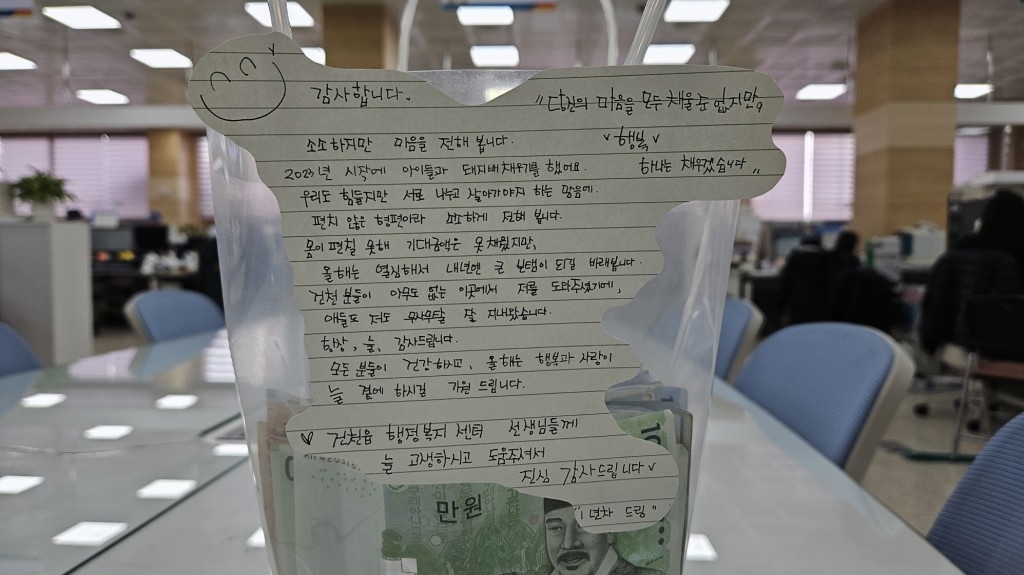 감사합니다.
"다현의 마음을 모두 채울 순 없지만,
행복
하나는 채우겠습니다"
소소하지만 마음을 전해 봅니다.
2023년 시작에 아이들과 돼지배채우기를 했어요.
우리도 힘들지만 서로 나누고 살아가야지 하는 맘음에.
편치 않은 형편이라 소소하게 전해 봅니다.
몸이 편칠 못해 기대금액은 못채웠지만,
올해는 열심해서 내년엔 큰 보탬이 되길 바래봅니다.
건천 분들이 아무도 없는 이곳에서 저를 도와주셨기에,
애들도 저도 무사무탈 잘 지내왔습니다.
항상, 늘, 감사드립니다.
모든 분들이 건강하시고, 올해는 행복과 사랑이
늘 곁에 하시길 기원 드립니다.
건천읍 행정복지 센터 선생님들께
늘 고생하시고 도움주셔서
진심 감사드립니다
"1년차 드림"
만원